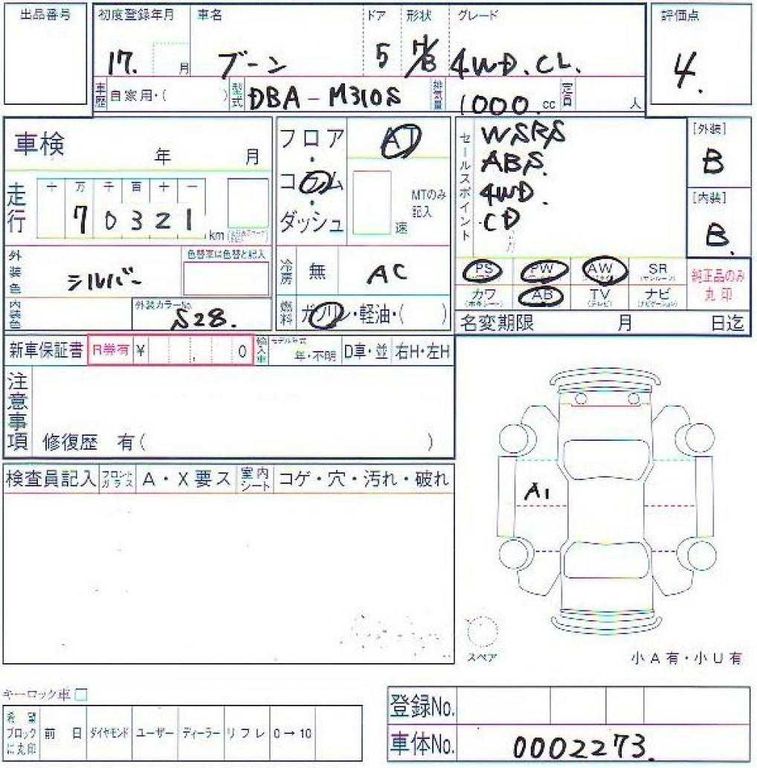 出品番号 初度登録年月 車名 ドア 形状 グレード 評価点
17. 月 ブーン 5 H/B 4WD.CL. 4.
車歴 自家用・( ) 型式 DBA-M310S 排気量 1000.cc 定員 人
車検 年 月
フロア・コラム・ダッシュ AT MTのみ記入 速
セールスポイント
WSRS
ABS.
4WD.
CD
[外装] B
[内装] B.
走行 十 万 千 百 十 一
70321 km
外装色 シルバー 色替車は色替と記入
冷房 無 AC
内装色 外装カラーNo. S28.
燃料 ガソリン・軽油・( )
PS PW AW SR
カワ AB TV ナビ
純正品のみ丸印
名変期限 月 日迄
新車保証書 R券有 ¥ , 0 輸入車 モデル年式 年・不明 D車・並 右H・左H
注意事項 修復歴 有( )
検査員記入 フロントガラス A・X要ス 室内シート コゲ・穴・汚れ・破れ
A1
スペア 小A有・小U有
キーロック車□
希望ブロックに丸印 前日 ダイヤモンド ユーザー ディーラー リフレ 0→10
登録No.
車体No. 0002273.